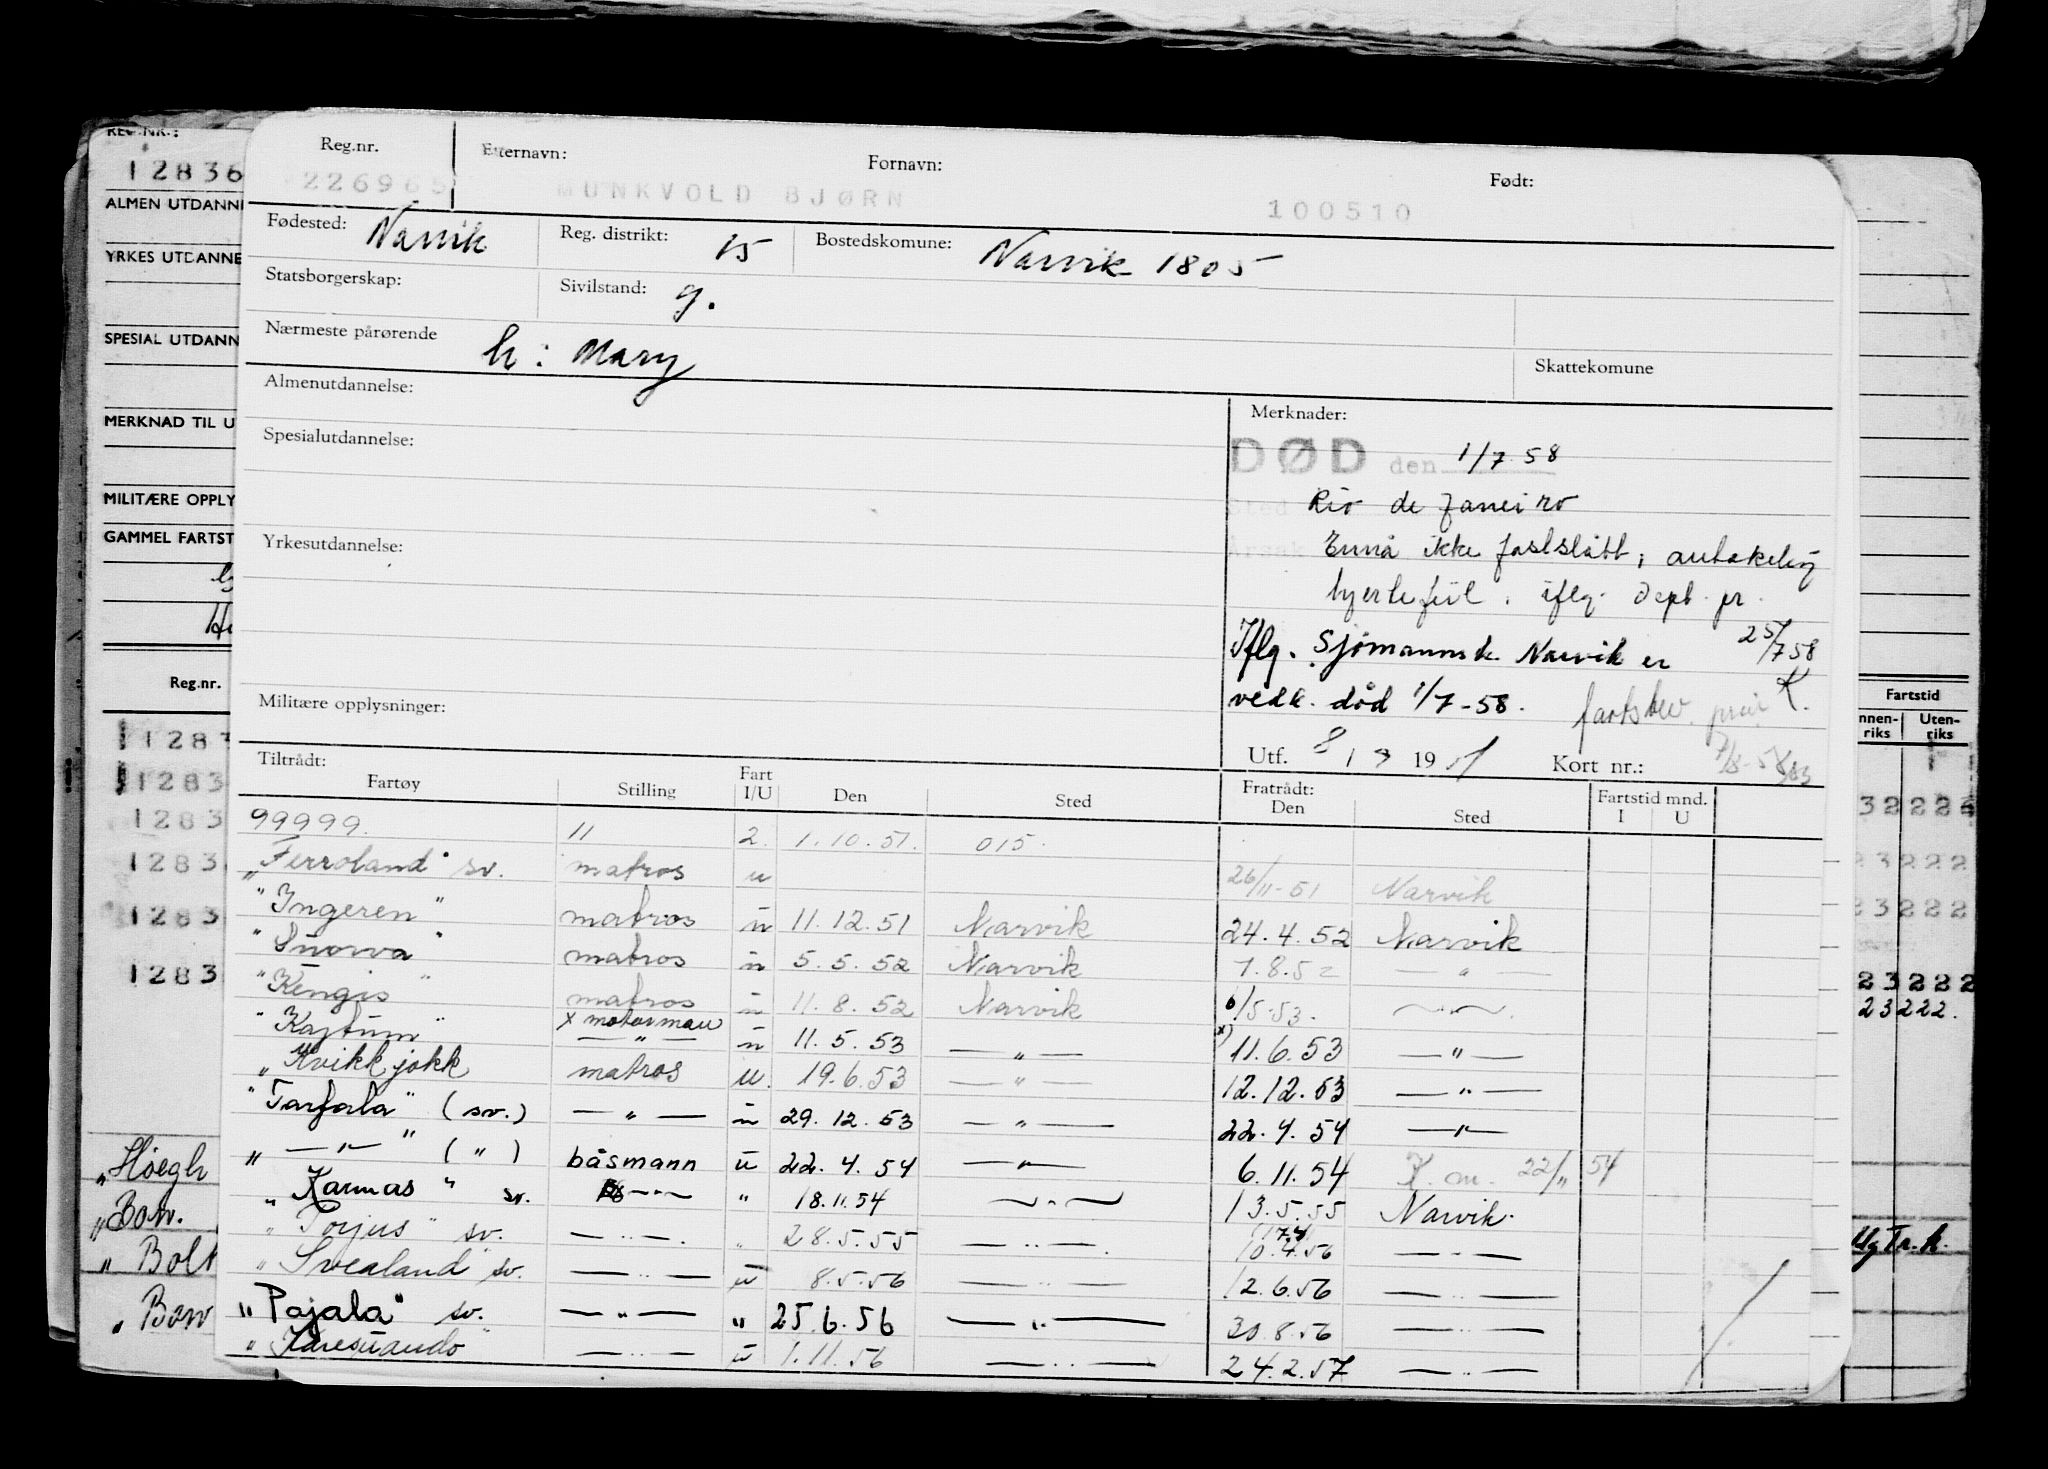 Reg.nr. Etternavn: Fornavn: Født:
226965 MUNKVOLD BJØRN 100510
Fødested: Narvik Reg. distrikt: 15 Bostedskomune: Narvik 1805
Statsborgerskap: Sivilstand: g.
Nærmeste pårørende h: Mary Skattekomune
Almenutdannelse:
Spesialutdannelse:
Yrkesutdannelse:
Militære opplysninger:
Merknader:
DØD den 1/7 58
Sted Rio de Janeiro
Årsak Ennå ikke fastslått, antakelig
hjertefeil. iflg. Dept. pr.
25/7 58
Iflg. Sjømannsk. Narvik er
vedk. død 1/7-58. fartsbev.
K.
Utf. 8 / 19 51 Kort nr.:
Tiltrådt: Fratrådt: Fartstid mnd.
Fartøy Stilling Fart I/U Den Sted Den Sted I U
99999. 11 2. 1.10.51. 015.
"Ferroland" sv. matros u 26/11-51 Narvik
"Ingeren" matros u 11.12.51 Narvik 24.4.52 Narvik
"Snorva" matros u 5.5.52 Narvik 7.8.52 — " —
"Kengis" matros u 11.8.52 Narvik 6/5.53. — " —
"Kajtum" x motormann — " — u 11.5.53 — " — x) 11.6.53 — " —
"Kvikkjokk matros u. 19.6.53 — " — 12.12.53 — " —
"Tarfala" (sv.) — " — u 29.12.53 — " — 22.4.54 — " —
" — " — " ( " ) båsmann u 22.4.54 — " — 6.11.54 K. m. 22/11 54
"Karmas" sv. — " — " 18.11.54 — " — 13.5.55 Narvik.
"Porjus" sv. — " —. " 28.5.55 — " —. (17.4) 10.4.56 — " —
"Svealand" sv. — " — u 8.5.56 — " — 12.6.56 — " —
"Pajala" sv. — " — " 25.6.56 — " — 30.8.56 — " —
"Karesuando" — " — u 1.11.56 — " — 24.2.57 — " —
REG.NR.:
12836
ALMEN UTDANNE
YRKES UTDANNE
SPESIAL UTDANN
MERKNAD TIL U
MILITÆRE OPPLY
GAMMEL FARTST
Reg.nr.
1283
1283
1283
1283
1283
1283
"Høegh
"Bow.
"Bow
Fartstid
nnen-riks Uten-riks
32222
23222
23222
23222
23222.
Tr.k.